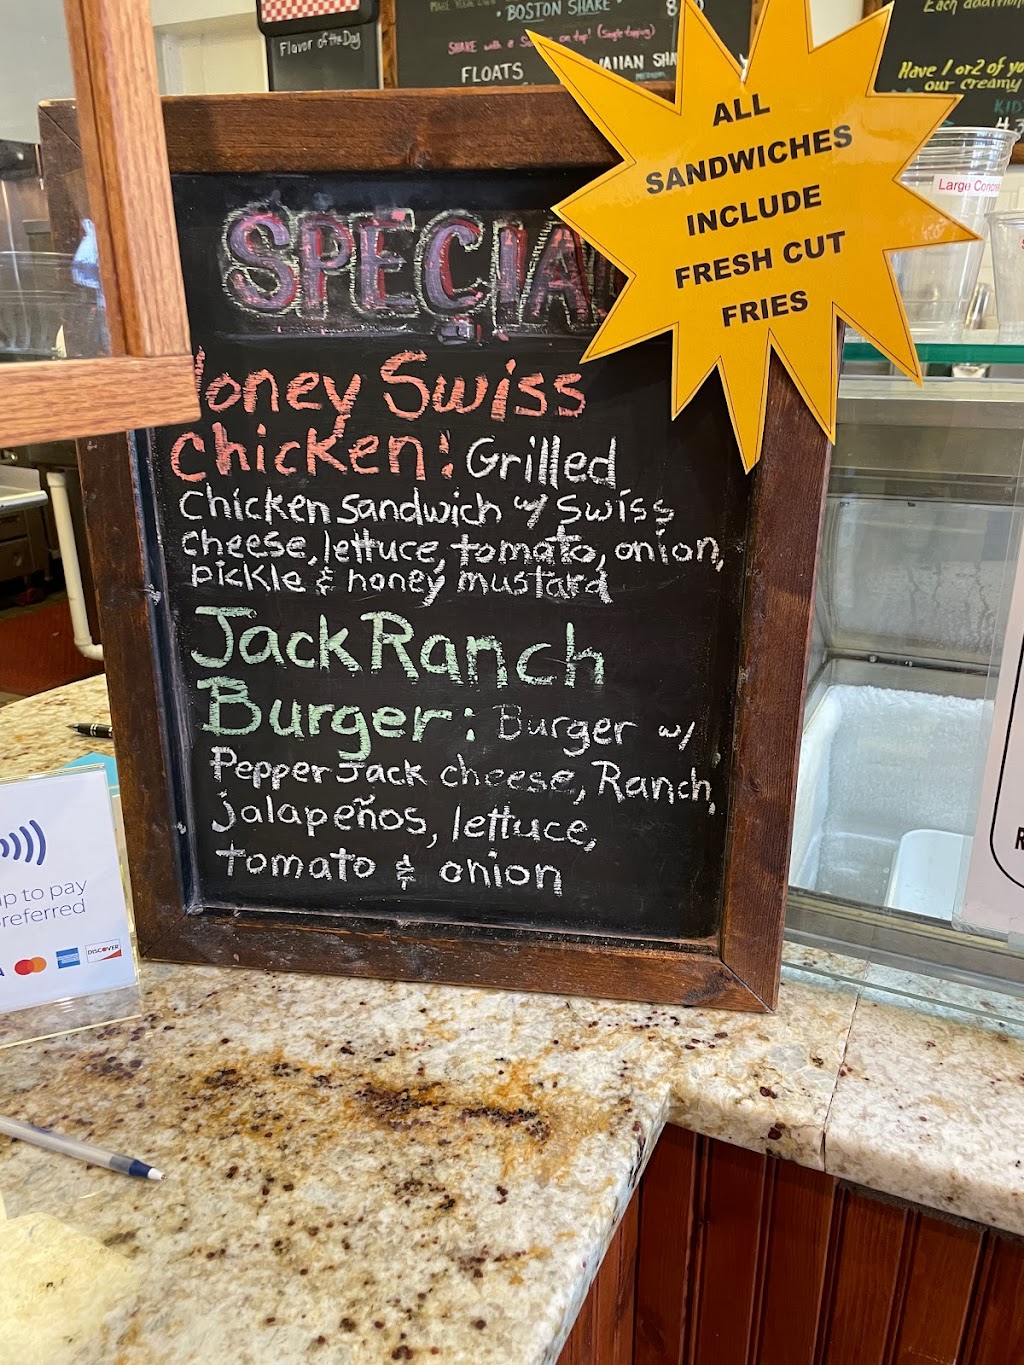 BOSTON SHAKE
SHAKE with a
on top! (Single topping)
FLOATS
Flavor of the Day
Each
Have 1 or 2 of yo
our creamy
KID
ALL
SANDWICHES
INCLUDE
FRESH CUT
FRIES
Large Concre
SPECIA
oney Swiss
Chicken: Grilled
Chicken sandwich w/ Swiss
cheese, lettuce, tomato, onion,
pickle & honey mustard
Jack Ranch
Burger: Burger w/
Pepper Jack cheese, Ranch,
jalapeños, lettuce,
tomato & onion
to pay
referred
DISCOVER
R